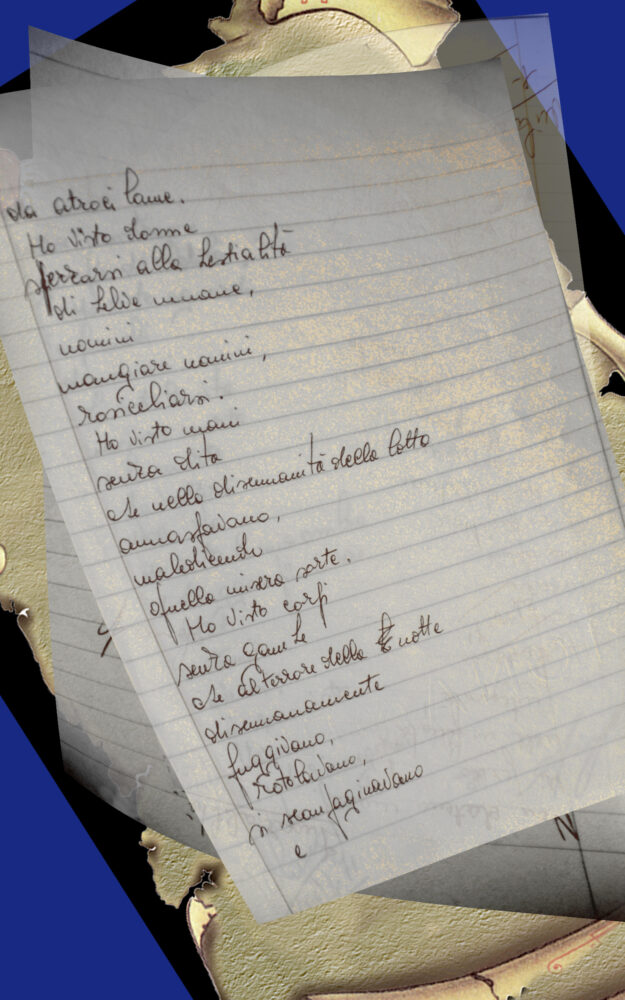 da atroci lame.
Ho visto donne
sferrarsi alla bestialità
di belve umane,
uomini
mangiare uomini,
rosicchiarsi.
Ho visto mani
senza dita
che nella disumanità della lotta
annaspavano,
maledicendo
quella misera sorte.
Ho visto corpi
senza gambe
che al terrore della notte
disumanamente
fuggivano,
rotolavano,
si scaraginavano
e